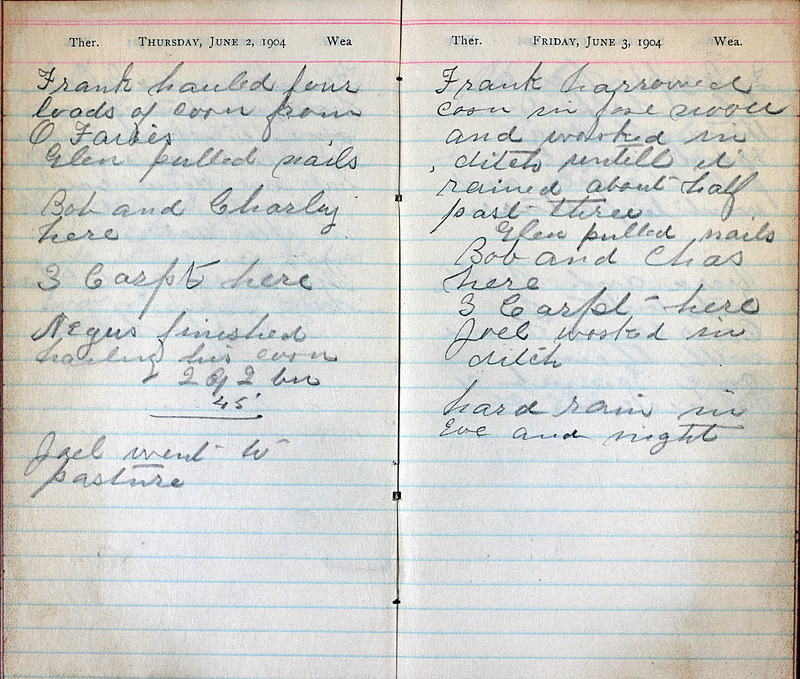 Ther. THURSDAY, JUNE 2, 1904 Wea
Frank hauled four
loads of corn from
O
Glen pulled nails
Bob and Charley
here
3 Carpt here
Negus finished
hauling his corn
bu
45
Joel went to
pasture
Ther. FRIDAY, JUNE 3, 1904 Wea.
Frank harrowed
corn in fore noon
and worked in
ditch untill it
rained about half
past three
Glen pulled nails
Bob and Chas
here
3 Carpt - here
Joel worked in
ditch
hard rain in
Eve and night